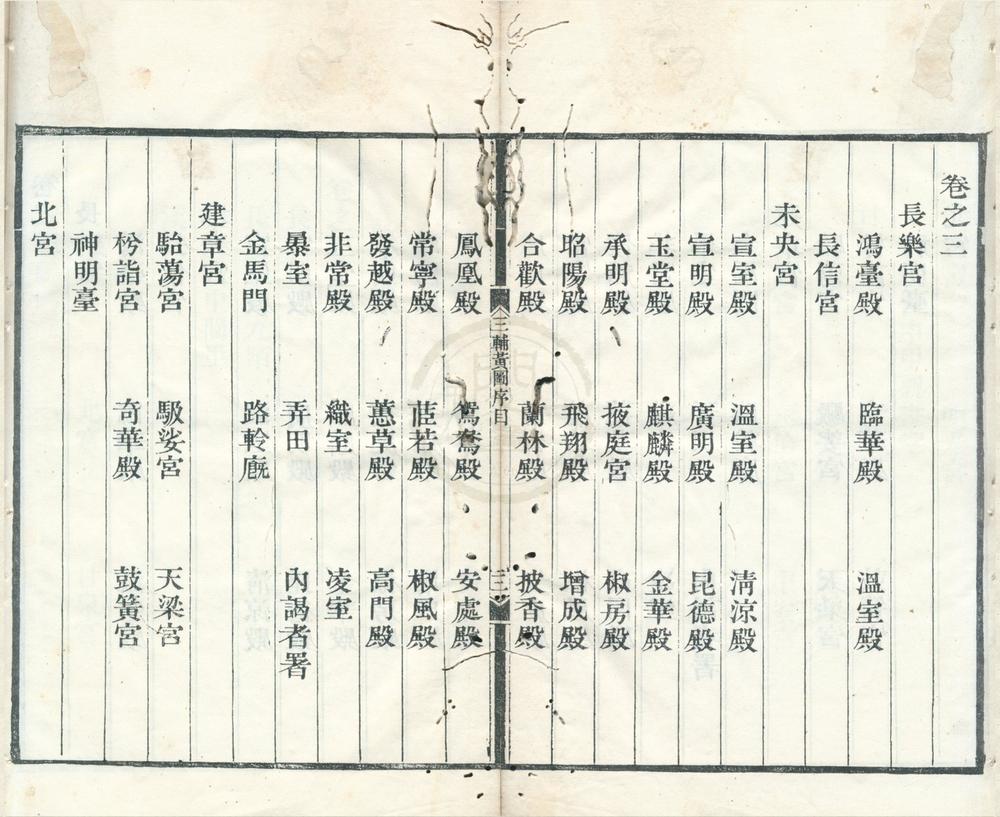 卷之三
長樂宮
鴻臺殿 臨華殿 溫室殿
長信宮
未央宮
宣室殿 溫室殿 淸涼殿
宣明殿 廣明殿 昆德殿
玉堂殿 麒麟殿 金華殿
承明殿 掖庭宮 椒房殿
昭陽殿 飛翔殿 增成殿
合歡殿 蘭林殿 披香殿
三輔黃圖序目 三
鳳凰殿 鴛鴦殿 安處殿
常寧殿 茝若殿 椒風殿
發越殿 蕙草殿 高門殿
非常殿 織室 凌室
暴室 弄田 內謁者署
金馬門 路軨廄
建章宮
駘蕩宮 馺娑宮 天梁宮
枍詣宮 奇華殿 鼓簧宮
神明臺
北宮